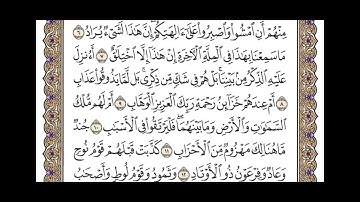 مِنْهُمْ أَنِ ٱمْشُوا۟ وَٱصْبِرُوا۟ عَلَىٰٓ ءَالِهَتِكُمْ ۖ إِنَّ هَٰذَا لَشَىْءٌ يُرَادُ ٦
مَا سَمِعْنَا بِهَٰذَا فِى ٱلْمِلَّةِ ٱلْءَاخِرَةِ إِنْ هَٰذَآ إِلَّا ٱخْتِلَٰقٌ ٧ أَءُنزِلَ
عَلَيْهِ ٱلذِّكْرُ مِنۢ بَيْنِنَا ۚ بَلْ هُمْ فِى شَكٍّ مِّن ذِكْرِى ۖ بَل لَّمَّا يَذُوقُوا۟ عَذَابِ
٨ أَمْ عِندَهُمْ خَزَآئِنُ رَحْمَةِ رَبِّكَ ٱلْعَزِيزِ ٱلْوَهَّابِ ٩ أَمْ لَهُم مُّلْكُ
ٱلسَّمَٰوَٰتِ وَٱلْأَرْضِ وَمَا بَيْنَهُمَا ۖ فَلْيَرْتَقُوا۟ فِى ٱلْأَسْبَٰبِ ١٠ جُندٌ
مَّا هُنَالِكَ مَهْزُومٌ مِّنَ ٱلْأَحْزَابِ ١١ كَذَّبَتْ قَبْلَهُمْ قَوْمُ نُوحٍ
وَعَادٌ وَفِرْعَوْنُ ذُو ٱلْأَوْتَادِ ١٢ وَثَمُودُ وَقَوْمُ لُوطٍ وَأَصْحَٰبُ